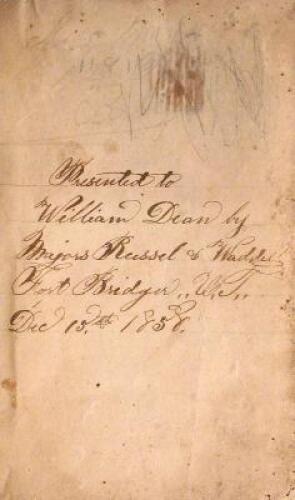 Presented to
William Dean by
Majors Russel & Waddel
Fort Bridger,, U.T,,
Dec 15.th 1858.